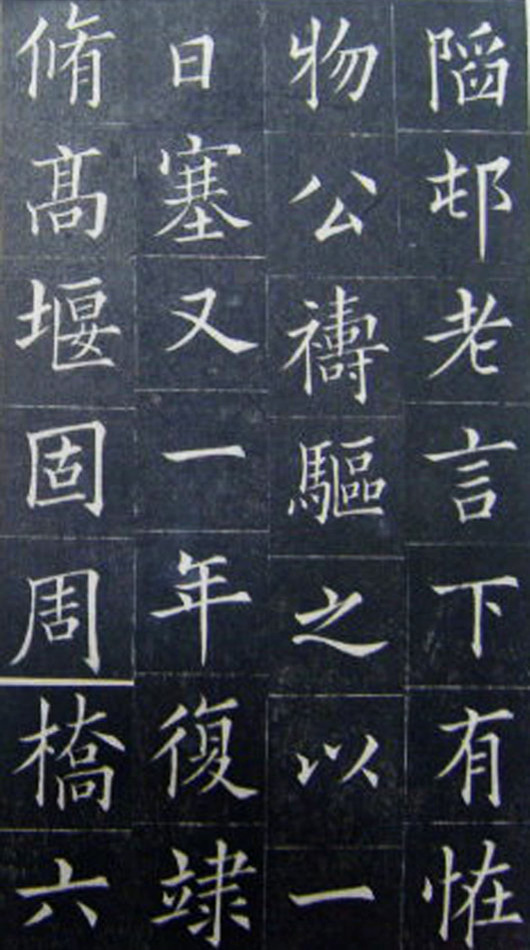 陷邨老言下有恠
物公禱驅之以一
日塞又一年復竦
脩髙堰固周橋六